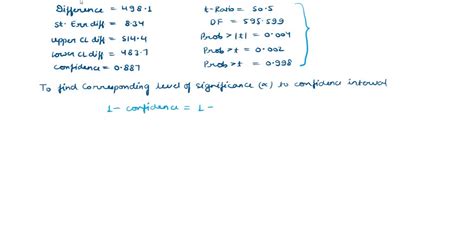 Difference = 498.1
St. Err diff = 8.34
upper CL diff = 514.4
lower CL diff = 483.7
Confidence = 0.887
t-Ratio = 50.5
DF = 595.599
Prob > |t| = 0.004
Prob > t = 0.002
Prob > t = 0.998
To find corresponding level of significance (α) to confidence interval
1 - confidence = 1 -